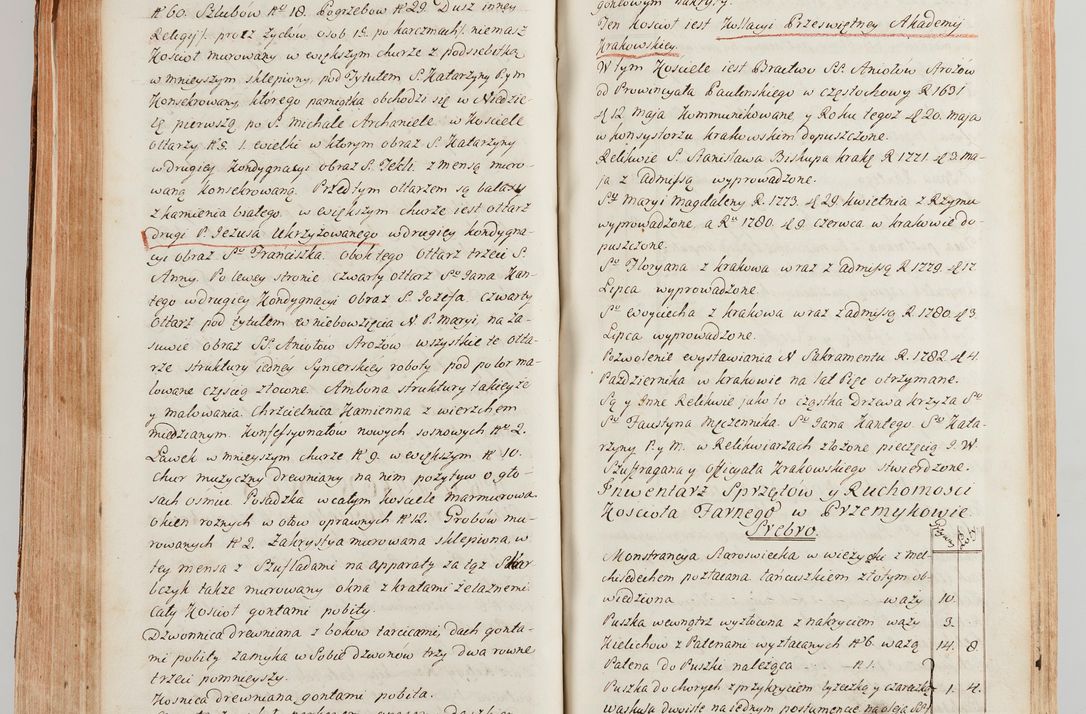 Nº 60. Szlubow Nº 18. Pogrzebow Nº 29. Dusz inney
Religÿi procz Zydow osob 15. po karczmach niemasz
Kosciol murowany w większym churze z podsiebitką
w mnieyszym sklepiony, pod Tytulem S. Katarzyny P. y m
Konsekrowany, ktorego pamiątka obchodzi się w Niedzie-
lę pierwszą po S. Michale Archaniele. w Kosciele
Ołtarzy Nº 5. 1. wielki w ktorym obraz S. Katarzyny
w drugiey Kondygnacyi obraz S. Tekli. z mensą muro-
waną konsekrowaną. Przed tym ołtarzem są balasy
z kamienia białego. w większym churze iest ołtarz
drugi P. Jezusa Ukrzyżowanego w drugiey kondygna-
cyi obraz Sgo Franciszka. obok tego Ołtarz trzeci S.
Anny. Po lewey stronie czwarty ołtarz Sgo Jana Kan-
tego w drugiey Kondygnacyi Obraz S. Jozefa. czwarty
Ołtarz pod tytulem wniebowzięcia N. P. Maryi, na Za-
suwie obraz SS. Aniołow Strożow wszystkie te Ołta-
rze struktury iedney Syncerskiey roboty, pod polor ma-
lowane częścią złowne. Ambona struktury takieyże
y malowania. Chrzcielnica Kamienna z wierzchem
miedzianym. Konfessyonałow nowych sosnowych Nº 2.
Ławek w mnieyszym churze Nº 9. w większym Nº 10.
Chor muzyczny drewniany na nem pozytyw o gło-
sach osmiu. Posadzka w całym kosciele marmurowa.
Okien roznych w ołow oprawnych Nº 12. Grobow mu-
rowanych Nº 2. Zakrystya murowana sklepiona, w
tey mensa z Szufladami na apparaty za tąz Skar
bczyk także murowany okna z kratami żelaznemi.
Cały Kosciol gontami pobity.
Dzwonnica drewniana z bokow tarcicami, dach gonta-
mi pobity zamyka w sobie dzwonow trzy dwa rowne
trzeci pomnieyszy.
Kosnica drewniana gontami pobita.
gontowym nakryty.
Ten kosciol iest Kollacyi Przeswiętney Akademy
Krakowskiey.
W tym Kosciele iest Bractwo SS. Aniołow Strożow
od Prowincyała Paulinskiego w częstochowy R. 1631
d 12 Maja Kommunikowane y Roku tegoż d 20. maja
w konsystorzu krakowskim dopuszczone.
Relikwie S. Stanisława Biskupa krakº R 1771. d 3. ma-
ja z admissą wyprowadzone.
Sey Maryi Magdaleny R. 1773. d 29. kwietnia z Rzymu
wyprowadzone, a Rº 1780. d 9 czerwca w krakowie do-
puszczone.
Sgo Floryana z krakowa wraz z admissą R 1779. d 17.
Lipca wyprowadzone.
Sgo Woyciecha z krakowa wraz z admissą R. 1780. d 3.
Lipca wyprowadzone.
Pozwolenie wystawiania N Sakramentu R. 1782 d 4.
Pazdziernika w krakowie na lat Pięc otrzymane.
Są y Inne Relikwie jako to cząstka Drzewa krzyża Sgo
Sgo Faustyna Męczennika. Sgo Jana Kantego. Sey Kata-
rzyny P. y M. w Relikwiarzach złożone pieczęcią J. W.
Szufragana y officyała Krakowskiego stwierdzone.
Inwentarz Sprzętow y Ruchomosci
Kosciola Farnego w Przemykowie.
Srebro.
Monstrancya Staroswiecka w wieżyczki z mel-
chisedechem pozłacana łancuszkiem złotym ob-
wiedziona waży 10.
Puszka wewnątrz wyzłocona z nakryciem waży 3.
Kielichow z Patenami wyzłacanych Nº 6. ważą 14. 8
Patena do Puszki należąca Nº 1.
Puszka do chorych z przykryciem łyżeczką y czareczką 1. 4.
waskula dwoiste na iednym postumencie na olea SS.